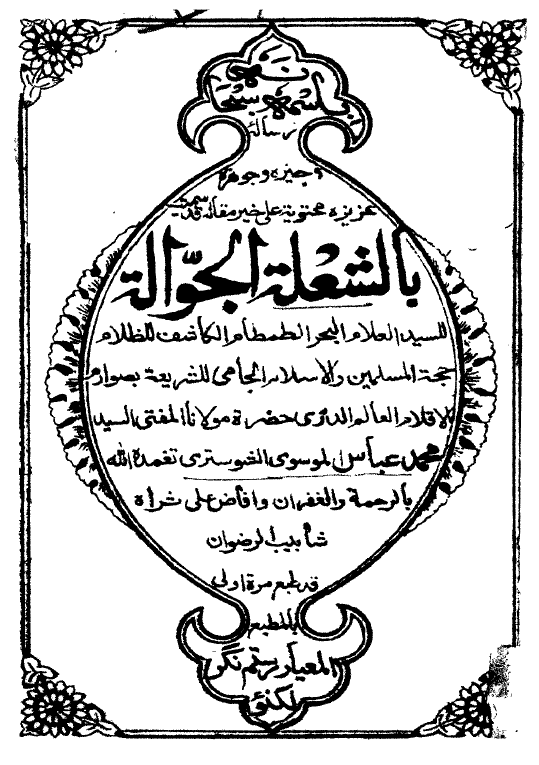 باسمه سبحانه
رسالة
وجيزه وجوهرة
عزيزه محتوية على خير مقالة قد سميت
بالشعلة الجوّالة
للسيد العلام البحر الطمطام الكاشف للظلام
حجة المسلمين والاسلام الحامى للشريعة بصوارم
الاقلام العالم حضرة مولانا المفتى السيد
محمد عباس الموسوى الشوسترى تغمده الله
بالرحمة والغفران وافاض على ثراه
شابيب الرضوان
قد طبع مرة اولى
بالمطبع
المعيار رستم نگر
لكنؤ